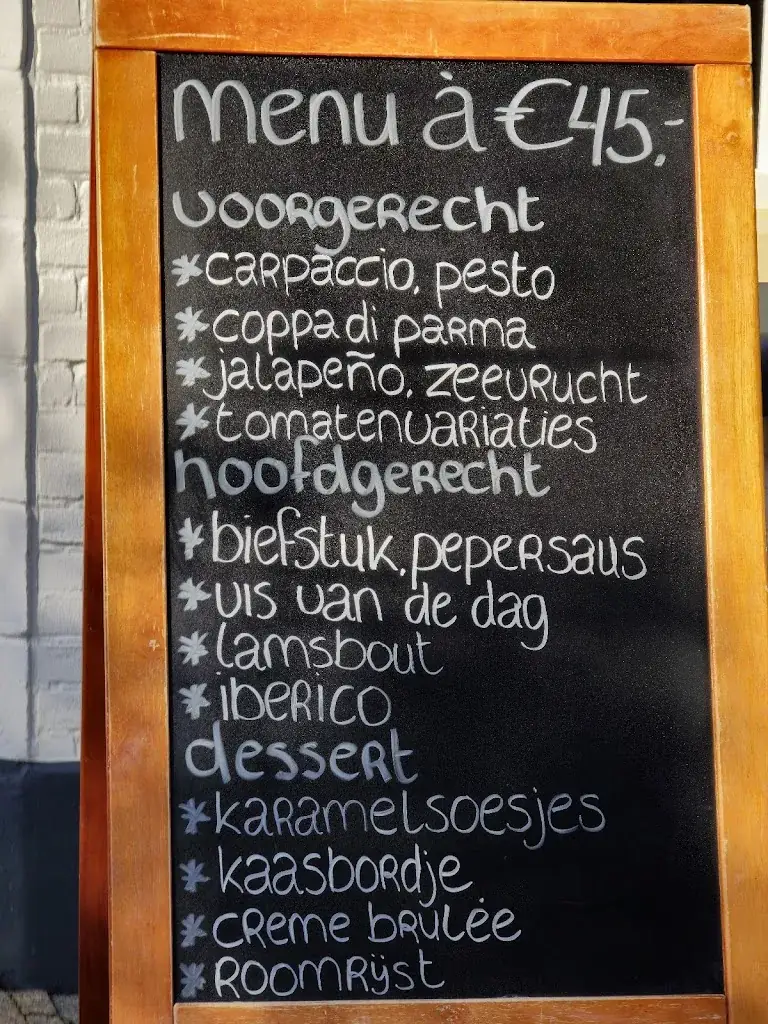 menu à €45,-
voorgerecht
*carpaccio, pesto
*coppa di parma
*jalapeño, zeevrucht
*tomatenvariaties
hoofdgerecht
*biefstuk, pepersaus
*vis van de dag
*lamsbout
*iberico
dessert
*karamelsoesjes
*kaasbordje
*creme brulée
*roomrijst